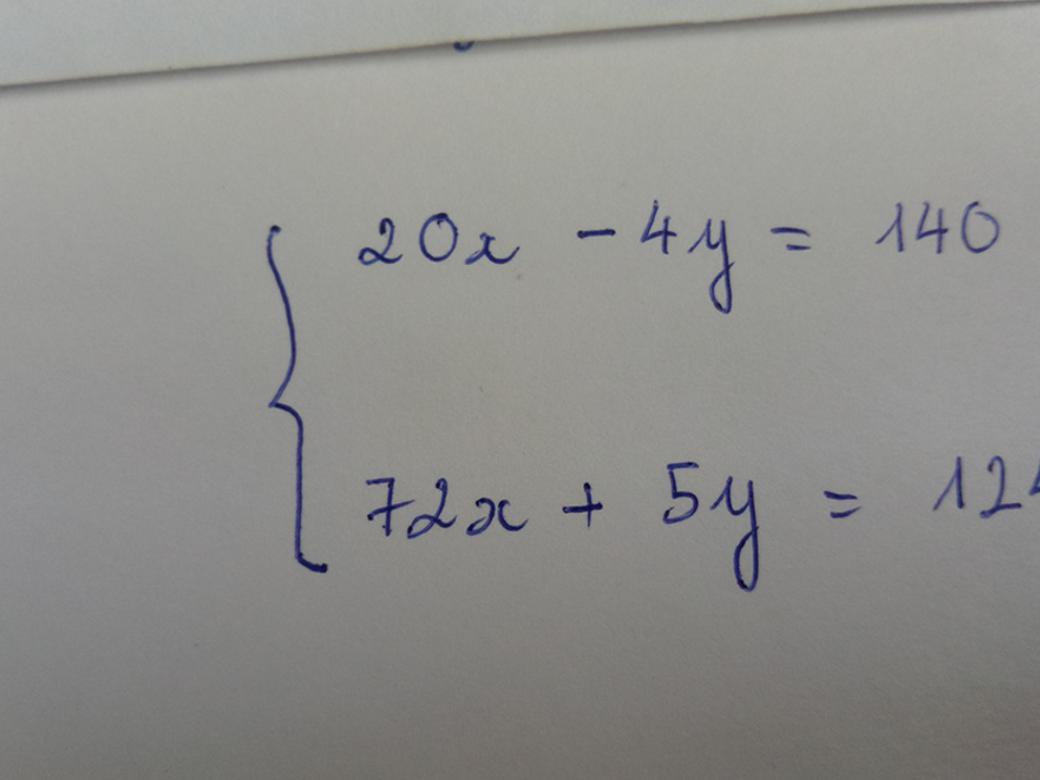 20x - 4y = 140
72x + 5y = 12